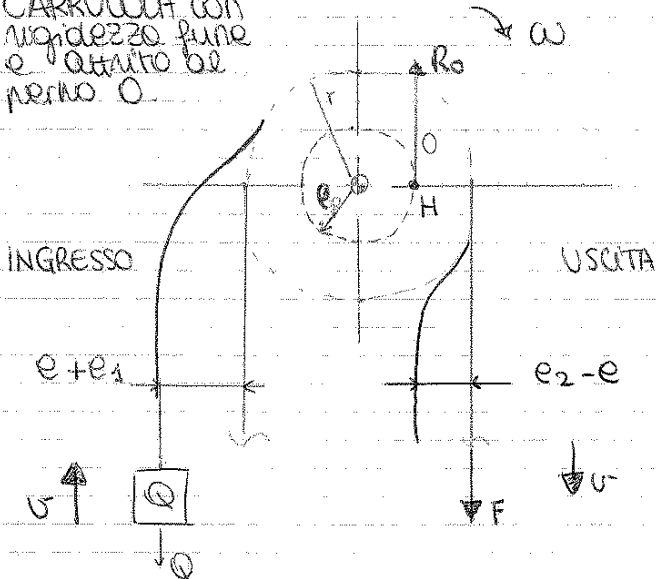 CARRUCOLA con
rigidezza fune
e attrito al
perno O
ω
R₀
r
O
H
INGRESSO
USCITA
e + e₁
e₂ - e
v
Q
Q
F
v